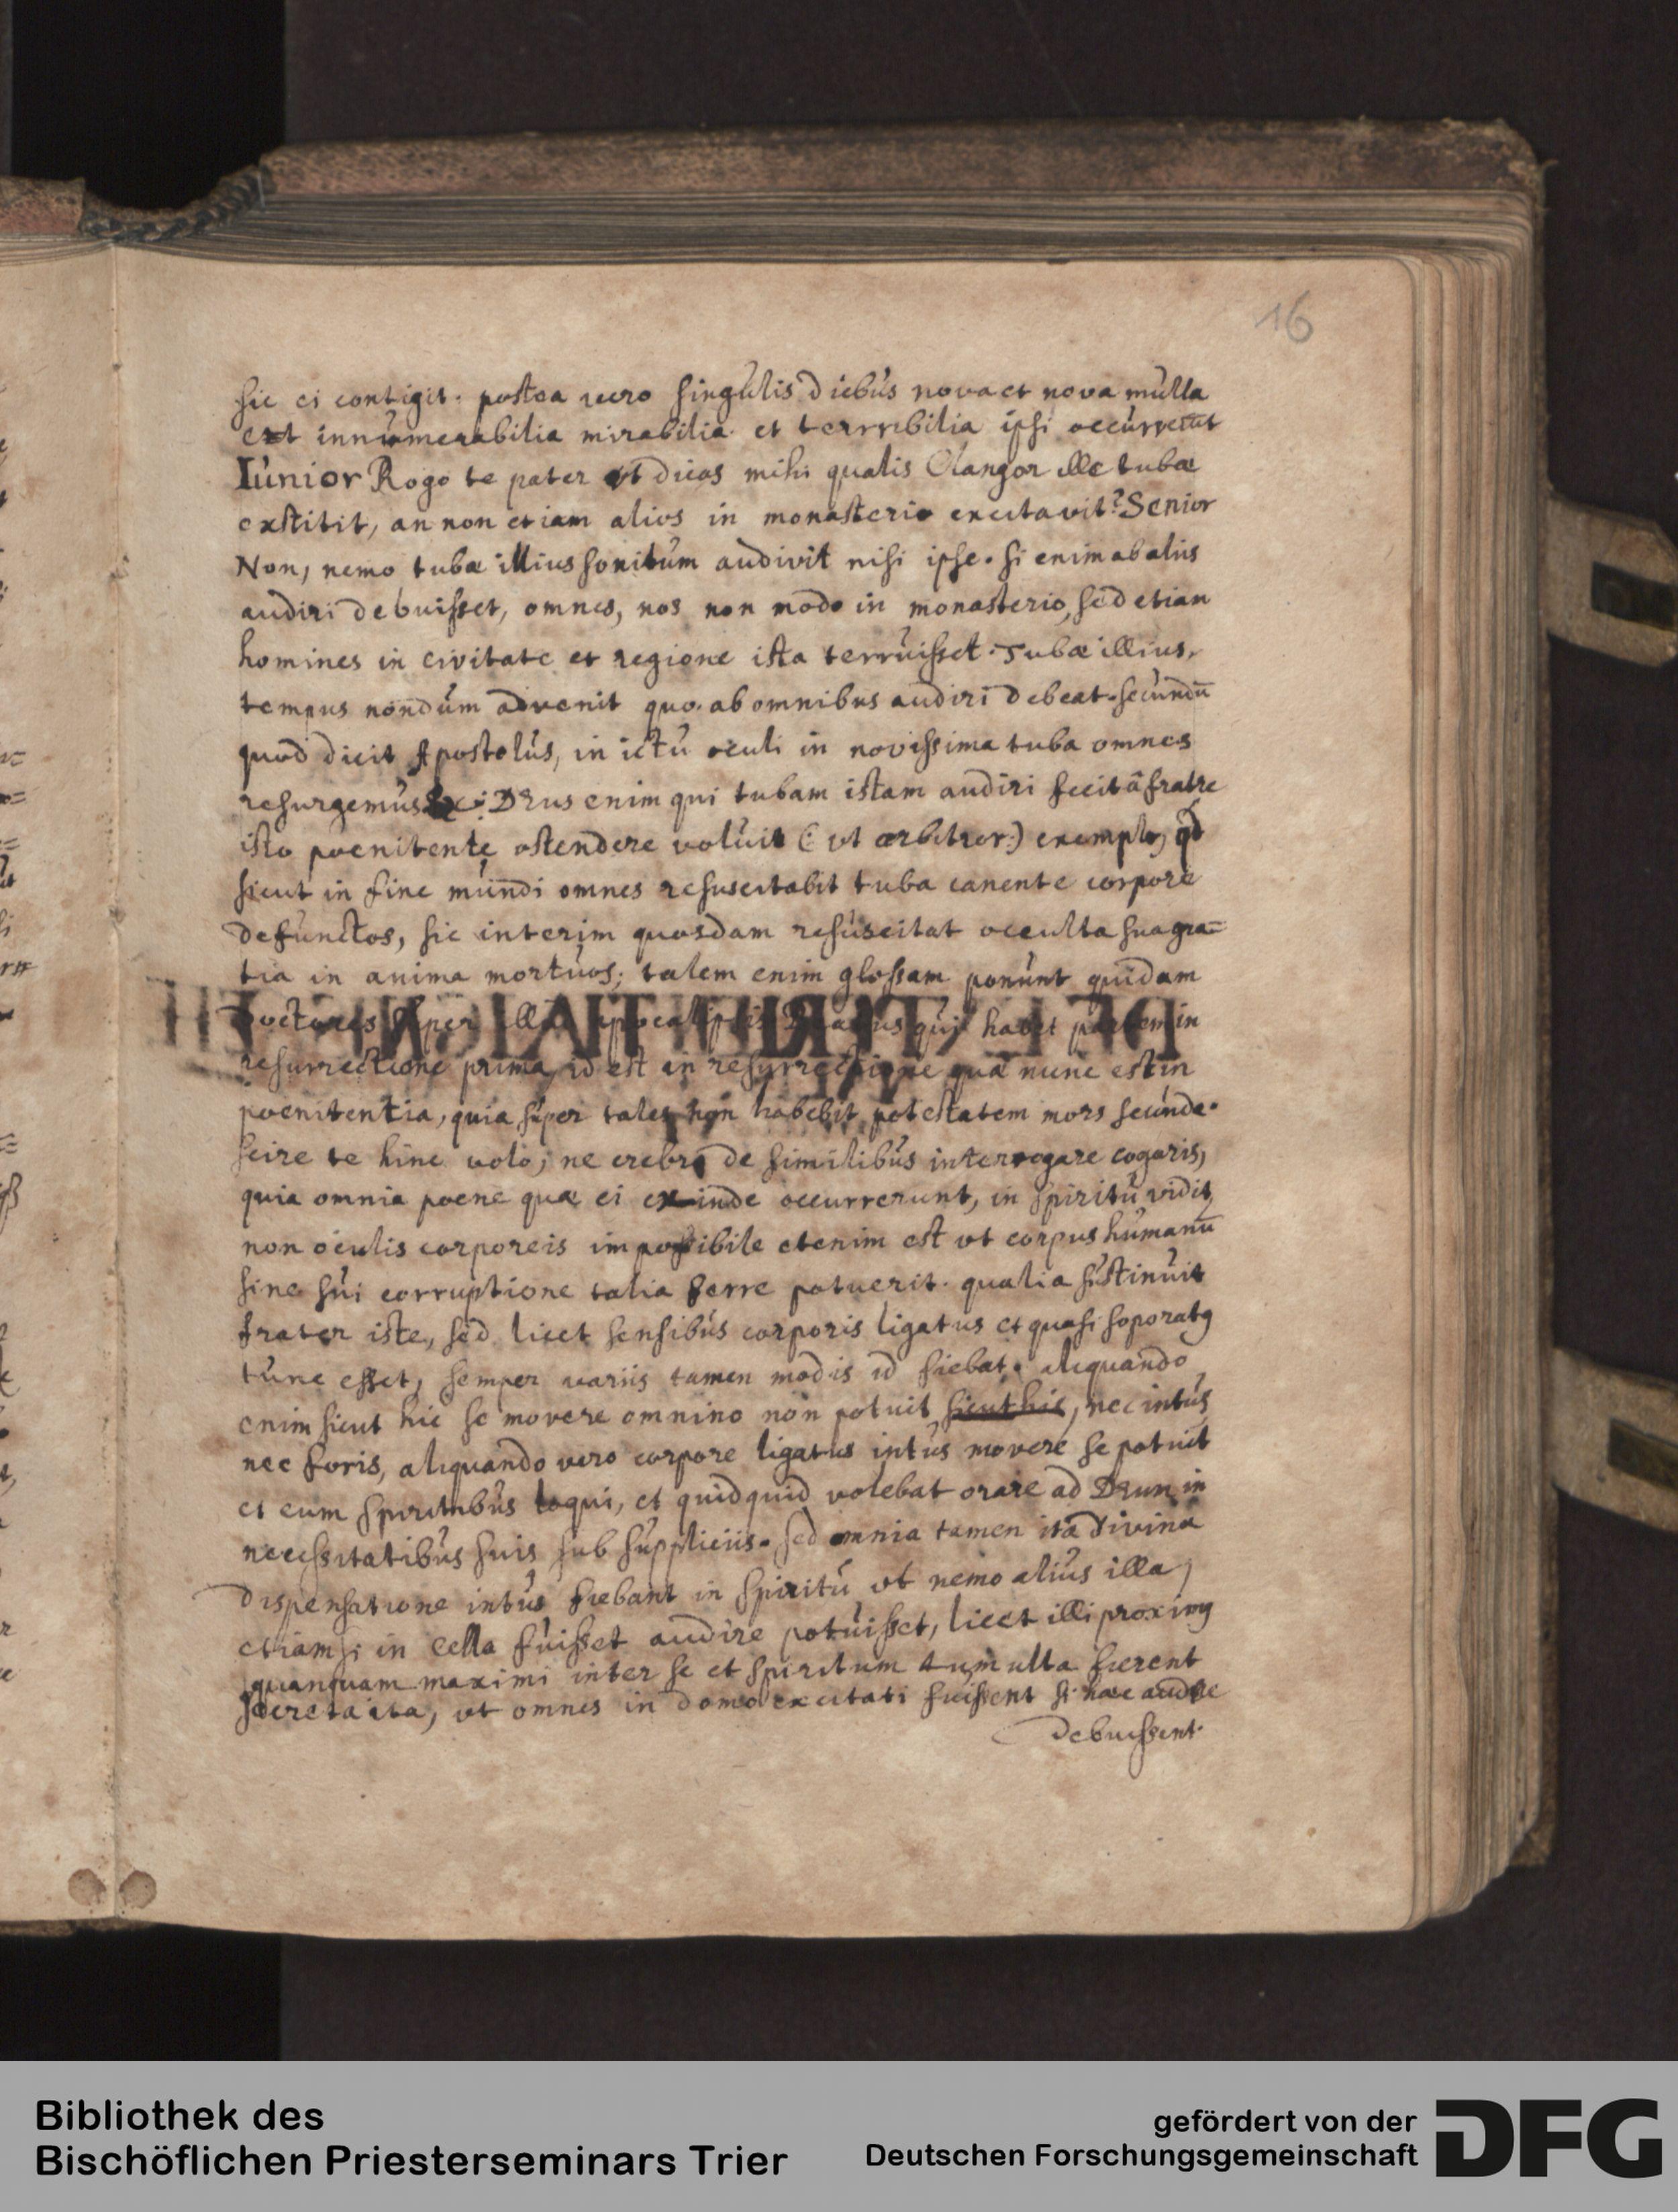 16
sic ei contigit. postea vero singulis diebus nova et nova multa
et innumerabilia mirabilia et terribilia ipsi occurrerunt
Iunior Rogo te pater ut dicas mihi qualis Clangor ille tubæ
exstitit, an non etiam alios in monasterio excitavit? Senior
Non, nemo tubæ illius sonitum audivit nisi ipse. si enim ab aliis
audiri debuisset, omnes, nos non modo in monasterio, sed etiam
homines in civitate et regione ista terruisset. Tubæ illius,
tempus nondum advenit quo ab omnibus audiri debeat. secundū
quod dicit Apostolus, in ictu oculi in novissima tuba omnes
resurgemus &c: Deus enim qui tubam istam audiri fecit â fratre
isto poenitente ostendere voluit (: ut arbitror:) exemplo, qd
sicut in fine mundi omnes resuscitabit tuba canente corpore
defunctos, sic interim quosdam resuscitat occulta sua gra=
tia in anima mortuos; talem enim glossam ponunt quidam
Doctores super illud Apocalipsis Beatus qui habet partem in
resurrectione prima, id est in resurrectione quæ nunc est in
poenitentia, quia super tales non habebit potestatem mors secunda.
scire te hinc volo, ne crebro de similibus interrogare cogaris,
quia omnia poene quæ ei exinde occurrerunt, in spiritu vidit,
non oculis corporeis impossibile etenim est ut corpus humanū
sine sui corruptione talia ferre potuerit. qualia sustinuit
frater iste, sed licet sensibus corporis ligatus et quasi soporatg
tunc esset, semper variis tamen modis id fiebat. aliquando
enim sicut hic se movere omnino non potuit sicut hic, nec intus
nec foris, aliquando vero corpore ligatus intus movere se potuit
et cum spiritibus loqui, et quidquid volebat orare ad Deum in
necessitatibus suis sub suppliciis. sed omnia tamen ita divina
dispensatione intus fiebant in spiritu ut nemo alius illa,
etiamsi in cella fuisset audire potuisset, licet illi proximg
quanquam maximi inter se et spiritum tumulta fierent
ita, ut omnes in domo excitati fuissent si hæc audire
debuissent.
Bibliothek des
Bischöflichen Priesterseminars Trier
gefördert von der
Deutschen Forschungsgemeinschaft
DFG